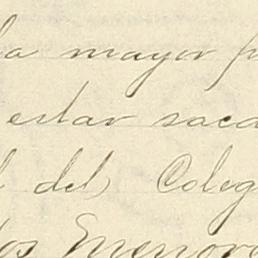 la mayor p
estar saca
l del Coleg
tos Menore